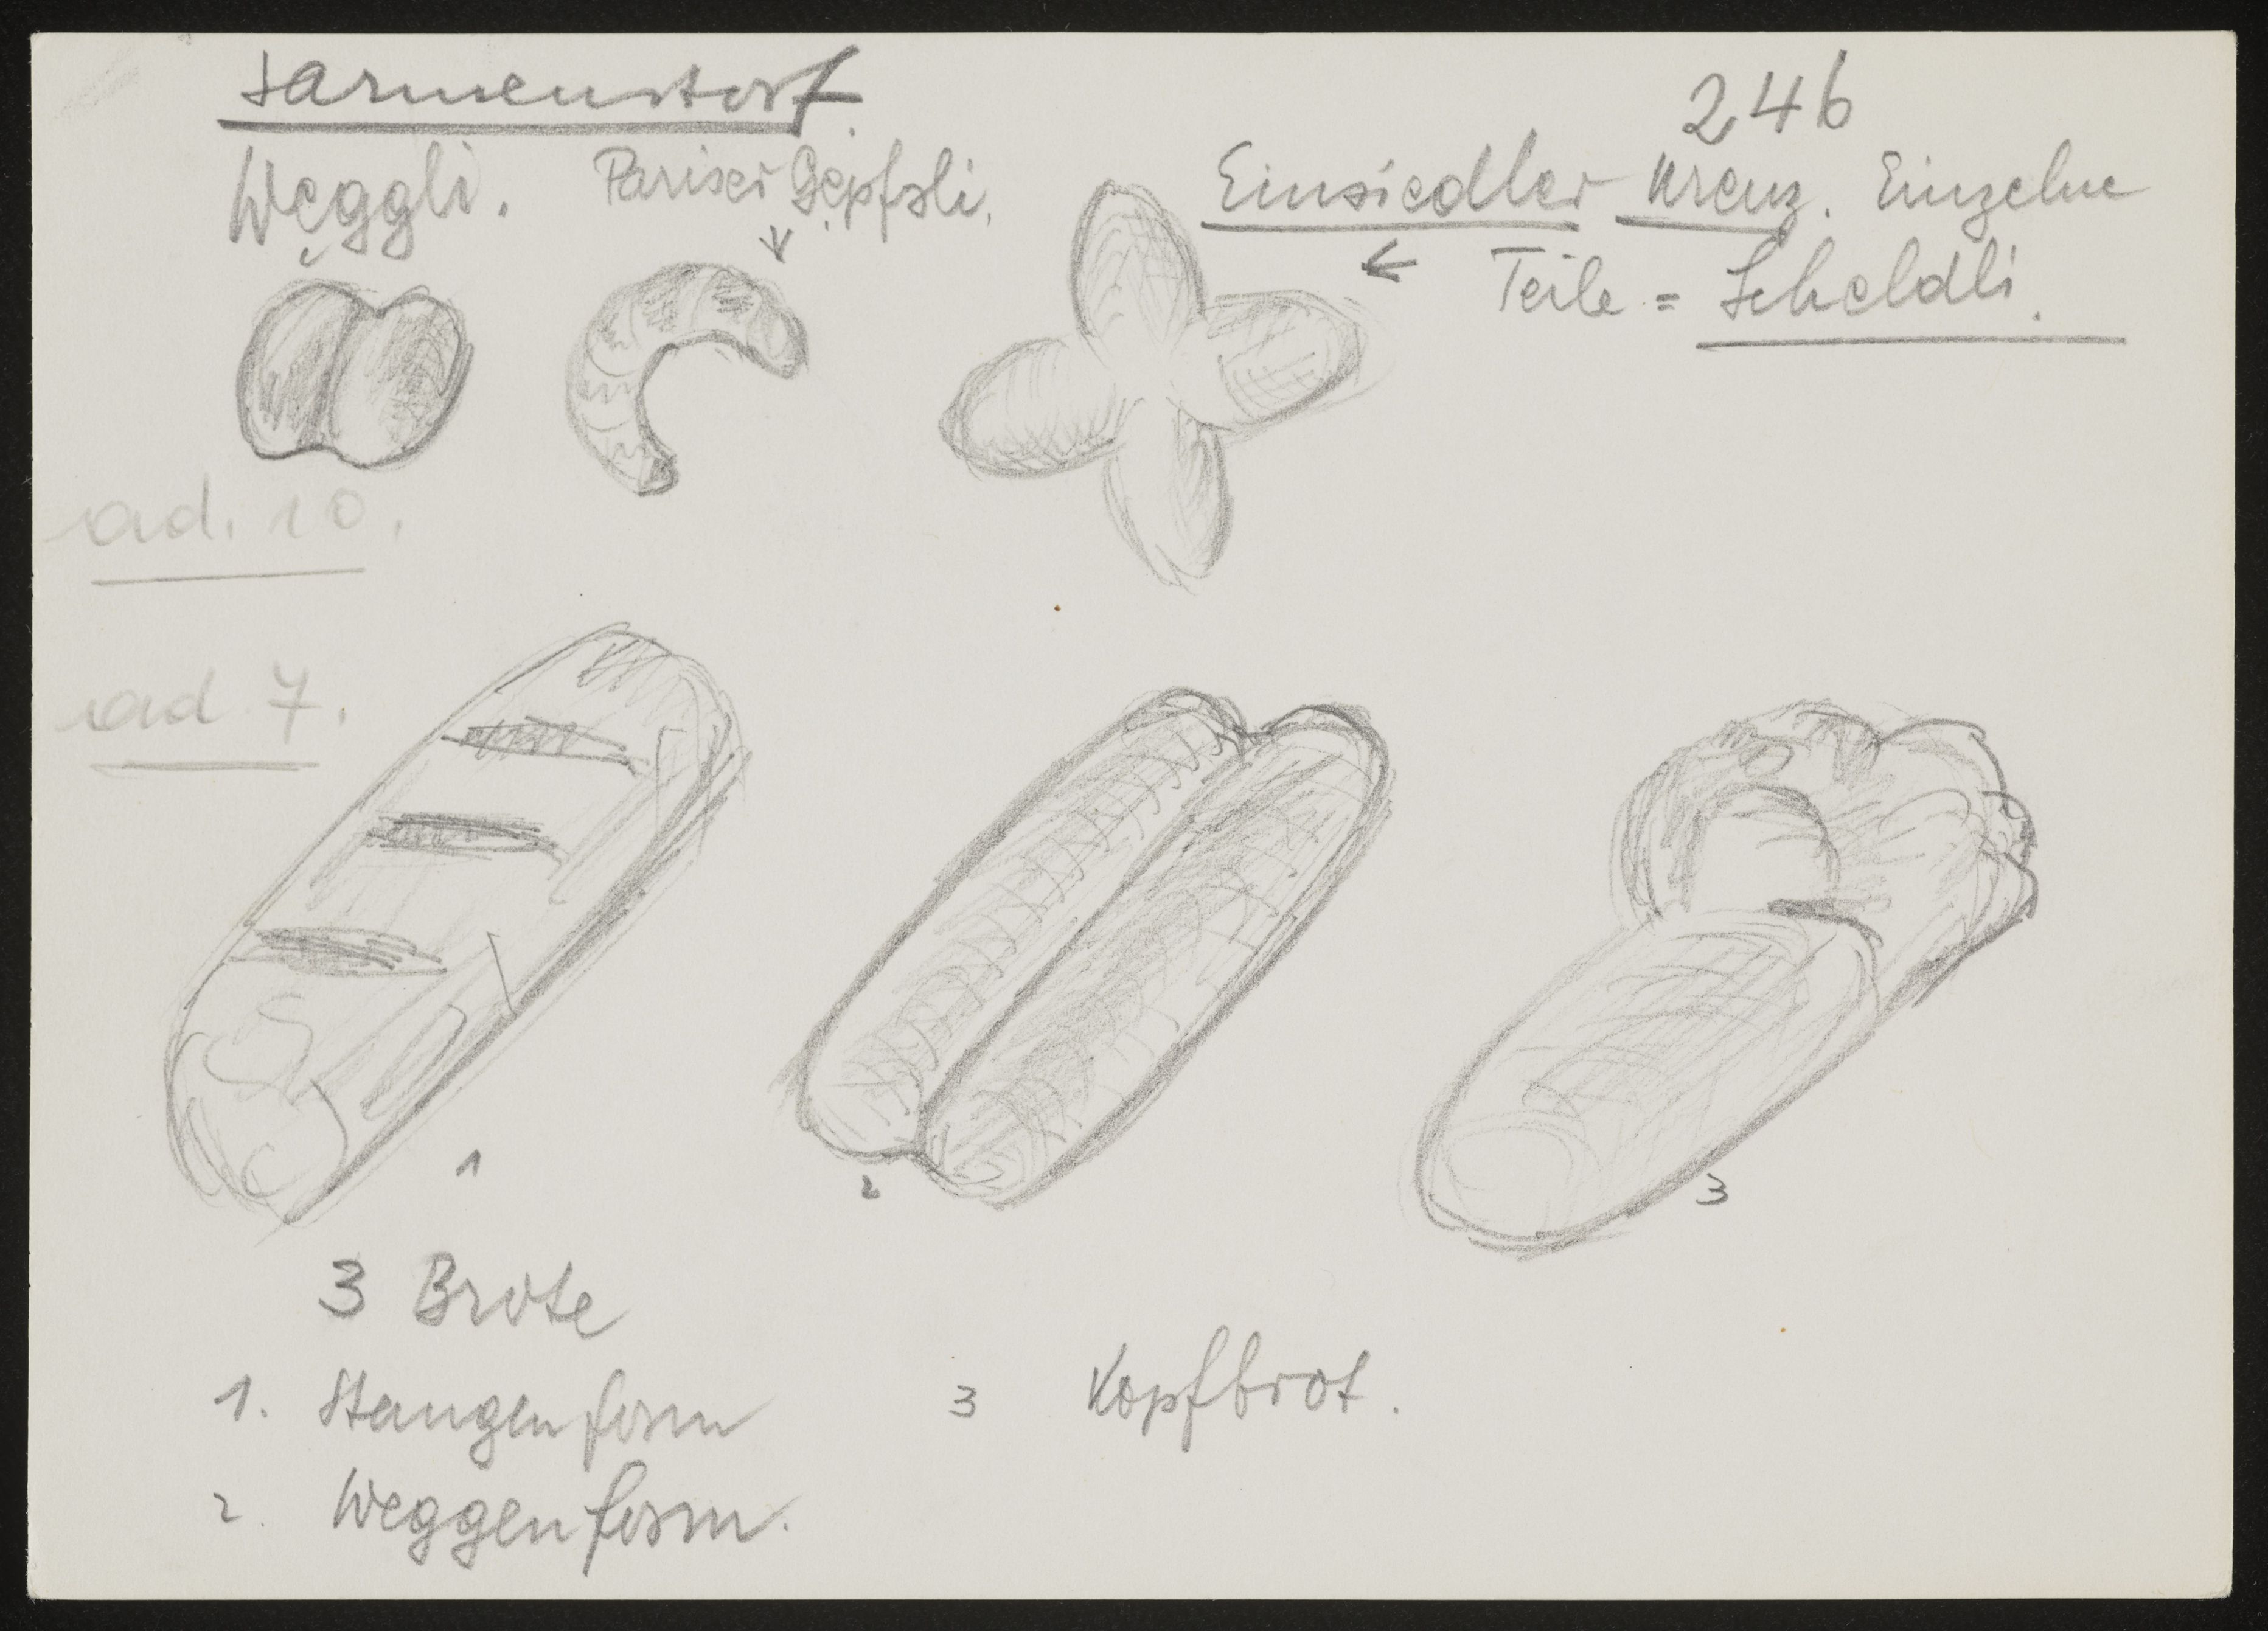 Sarmenstorf.
246
Weggli.
Pariser Gipfeli.
Einsiedler Kreuz. Einzelne
Teile = Scheldli.
ad. 10.
ad 7.
1
2
3
3 Brote
1. Stangenform
3 Kopfbrot.
2. Weggenform.